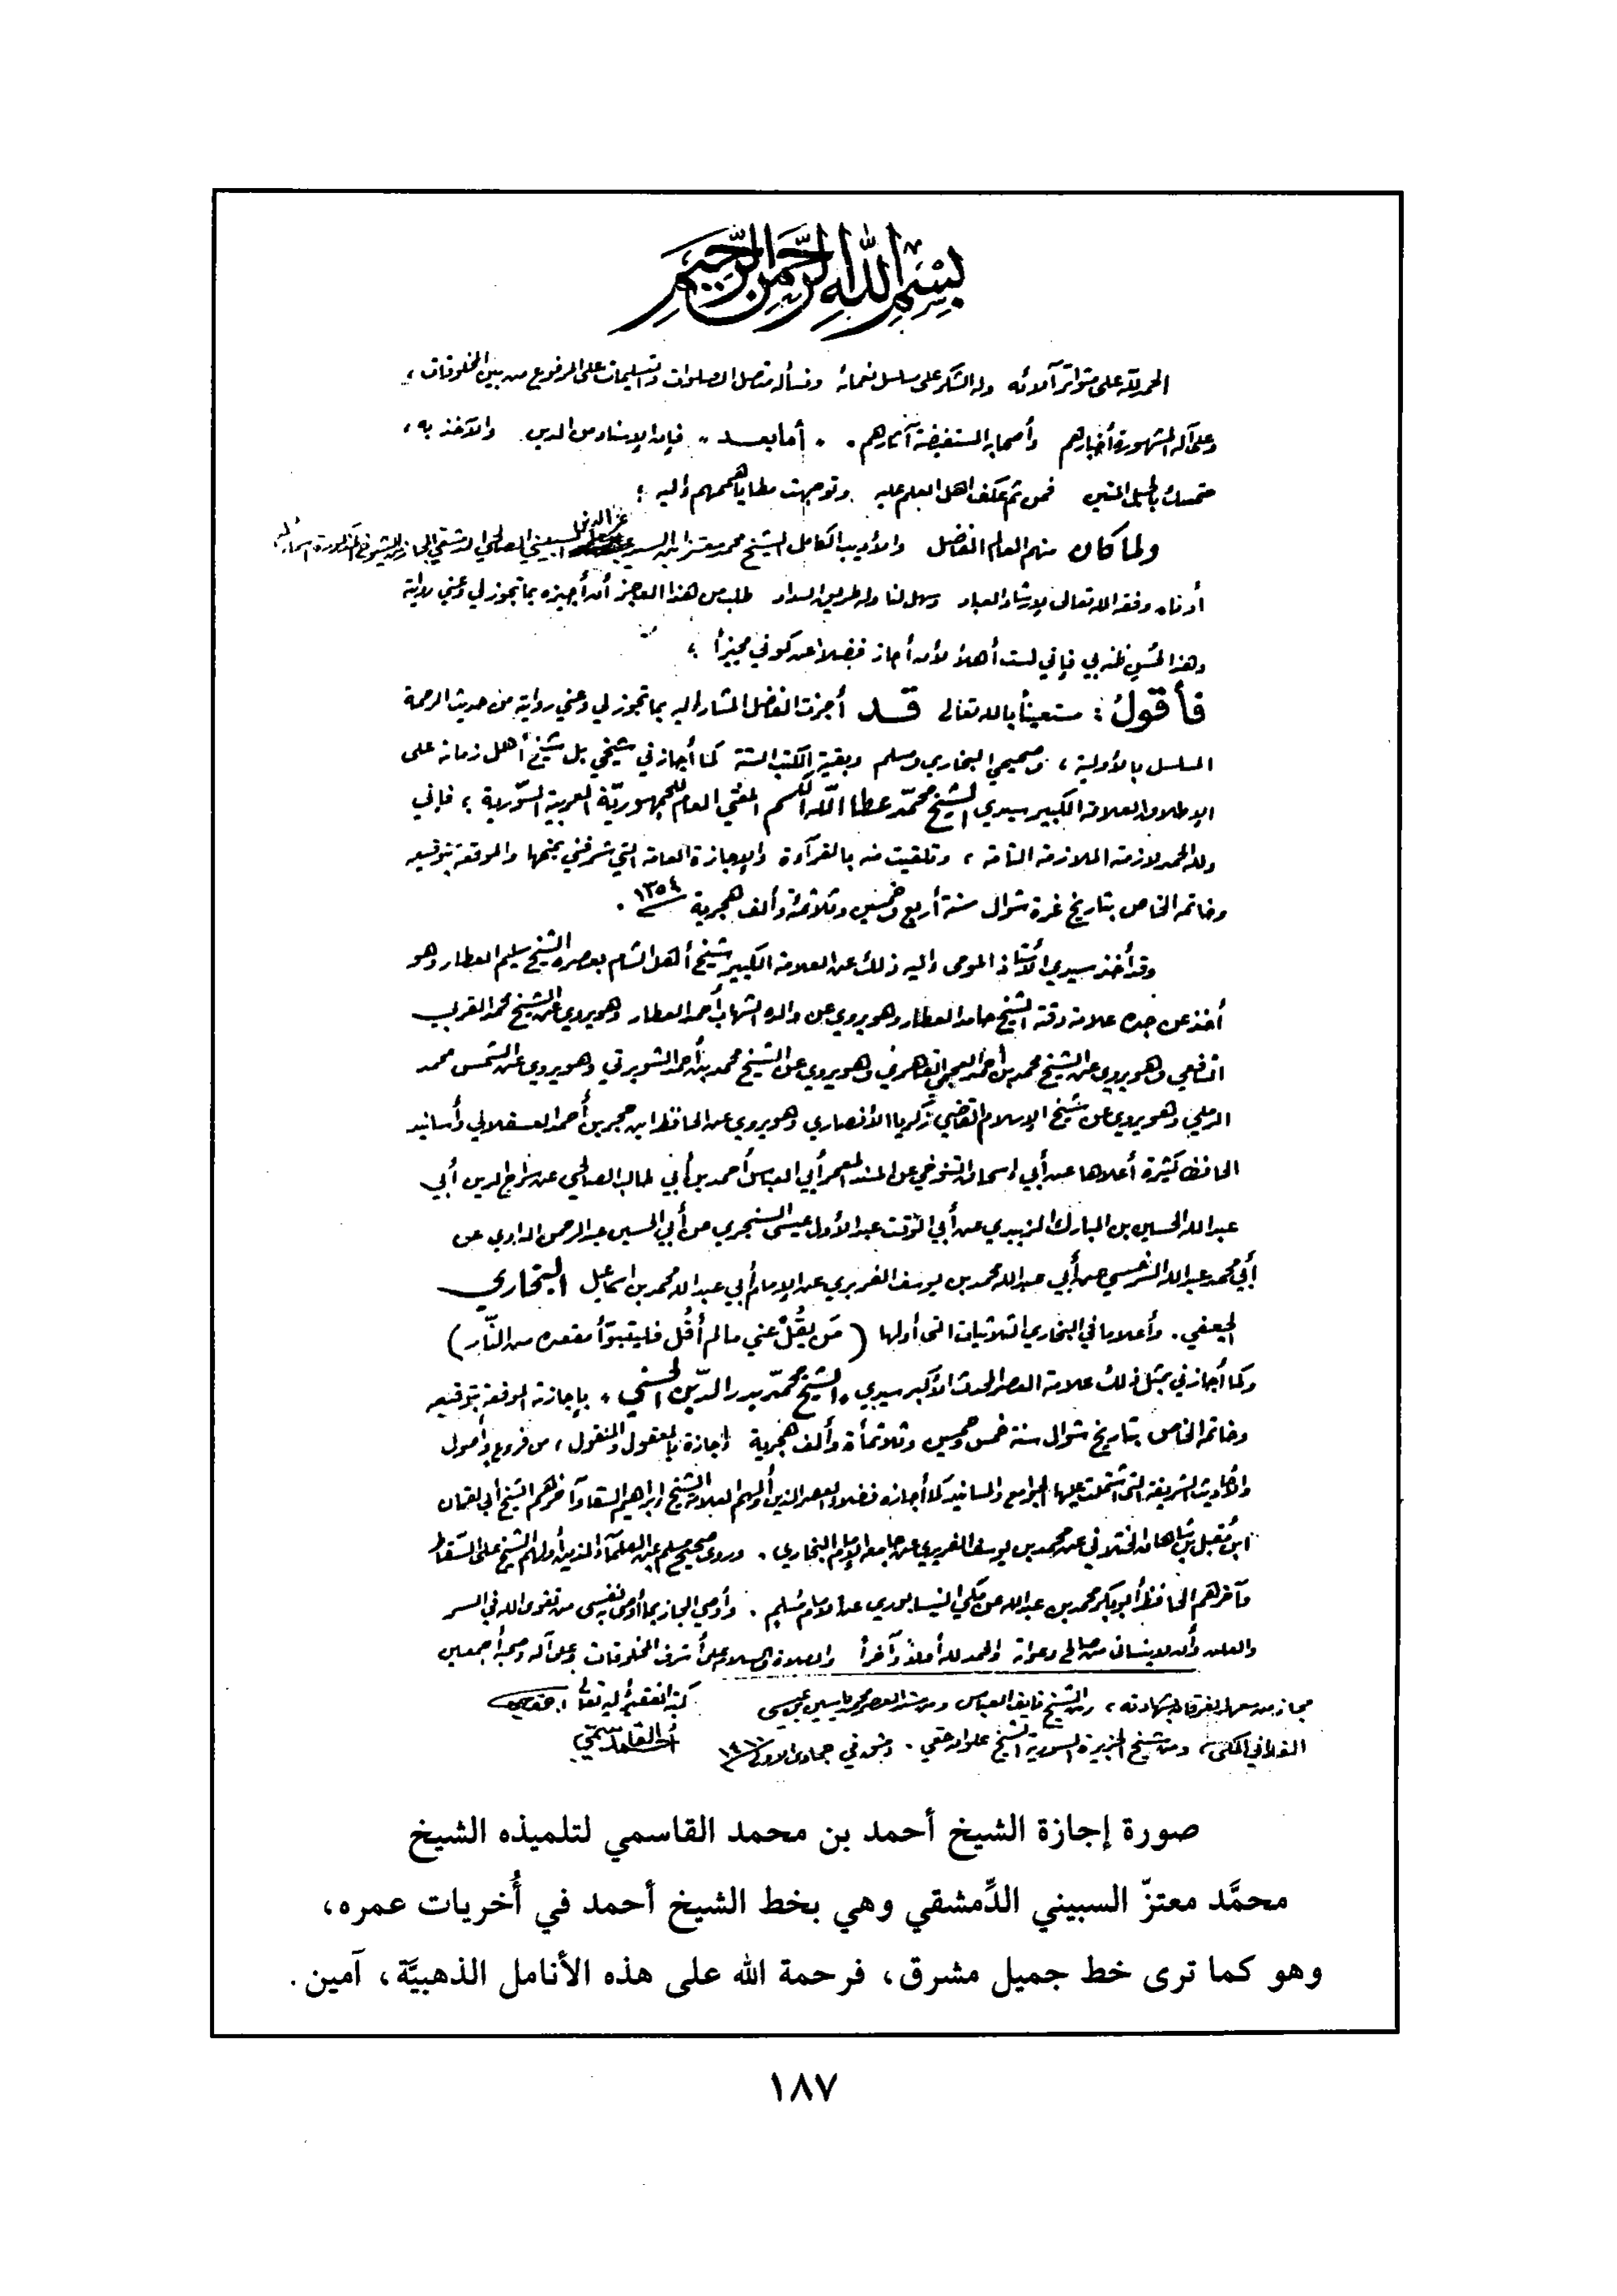 بسم الله الرحمن الرحيم
الحمد لله على متواتر آلائه وله الشكر على مسلسل نعمائه ونسأله متصل الصلوات والتسليمات على المرفوع من بين المخلوقات ،
وعلى آله المشهورة أخبارهم وأصحابه المستفيضة آثارهم . ، أما بعد ،، فإن الإسناد من الدين والآخذ به ،
متمسك بالحبل المتين فمن ثم عكف اهل العلم عليه وتوجهت مطايا هممهم إليه ؛
ولما كان منهم العالم الفاضل والأديب الكامل الشيخ محمد معتز ابن السيد عز الدين السبيني الصالحي الدمشقي المجاز من الشيوخ
أدناه وفقه الله تعالى لإرشاد العباد وسهل لنا وله طريق السداد طلب من هذا العاجز أن أجيزه بما تجوز لي وعني روايته
وهذا لحسن ظنه بي فإني لست أهلاً لأن أجاز فضلاً عن كوني مجيزاً ؛
فأقول : مستعيناً بالله تعالى قد أجزت الفاضل المشار اليه بما تجوز لي وعني روايته من حديث الرحمة
المسلسل بالأولية ، وصحيحي البخاري ومسلم وبقية الكتب الستة كما أجازني شيخي بل شيخ أهل زمانه على
الإطلاق العلامة الكبير سيدي الشيخ محمّد عطا اللّه الكسم المفتي العام للجمهوريّة العربية السّورية ؛ فإني
ولله الحمد لازمته الملازمة التامة ، وتلقيت منه بالقرآءة والإجازة العامة التي شرفني بمنحها والموقعة بتوقيعه
وخاتمه الخاص بتاريخ غرة شوال سنة أربع وخمسين وثلاثمئة وألف هجرية ١٣٥٤ .
وقد أخذ سيدي الأستاذ المومى إليه ذلك عن العلامة الكبير شيخ أهل الشام بعصره الشيخ سليم العطار وهو
أخذ عن جده علامة وقته الشيخ حامد العطار وهو يروي عن والده الشهاب أحمد العطار وهو يروي عن الشيخ محمد الغريب
الشافعي وهو يروي عن الشيخ محمد بن أحمد العجمي القاهري وهو يروي عن الشيخ محمد بن أحمد الشوبري وهو يروي عن الشمس محمد
الرملي وهو يروي عن شيخ الإسلام القاضي زكريا الأنصاري وهو يروي عن الحافظ ابن حجر بن أحمد العسقلاني وأسانيد
الحافظ كثيرة أعلاها عن أبي إسحاق التنوخي عن المسند المعمر أبي العباس أحمد بن أبي طالب الصالحي عن سراج الدين أبي
عبد الله الحسين بن المبارك الزبيدي عن أبي الوقت عبد الأول عيسى السنجري عن أبي الحسين عبد الرحمن الداودي عن
أبي محمد عبد الله السرخسي عن أبي عبد الله محمد بن يوسف الفربري عن الإمام أبي عبد الله محمد بن اسماعيل البخاري
الجعفي . وأعلا ما في البخاري الثلاثيات التي أولها ( مَن يقُلْ عني ما لم أقُل فليتبوّأ مقعده من النّار )
وكما أجازني بمثل ذلك علامة العصر المحدث الأكبر سيدي ، الشيخ محمّد بدر الدّين الحسني ، بإجازته الموقعة بتوقيعه
وخاتمه الخاص بتاريخ شوال سنة خمس وخمسين وثلاثمأة وألف هجرية إجازة بالمعقول والمنقول ، من فروع وأصول
والأحاديث الشريفة التي اشتملت عليها الجوامع والمسانيد كما أجازه فضلاء العصر الذين أولهم العلامة الشيخ إبراهيم السقا وآخرهم الشيخ أبي لقمان
ابن مُقبل بن شاهان الختلاني عن محمد بن يوسف الفربري عن جامعه الإمام البخاري . وروى صحيح مسلم عن العلمآء الذين أولهم الشيخ على السقاط
وآخرهم الحافظ أبو بكر محمد بن عبد الله عن مكي النيسابوري عن الإمام مُسلم . وأوصي المجاز بما أوصي به نفسي من تقوى الله في السر
والعلن وأن لا ينساني من صالح دعواته والحمد لله أولاً وآخراً والصلاة والسلام على أشرف المخلوقات وعلى آله وصحبه أجمعين
مجاز من معهد الفرقان بشهادته ، ومن الشيخ نايف العباس ومن مسند العصر محمد ياسين عيسى
الفاداني المكي ، ومن شيخ الجزيرة السورية الشيخ علوان حقي . دمشق في جمادى الاولى
كتبه الفقير إليه تعالى
أحمد القاسمي
صورة إجازة الشيخ أحمد بن محمد القاسمي لتلميذه الشيخ
محمَّد معتزّ السبيني الدِّمشقي وهي بخط الشيخ أحمد في أُخريات عمره،
وهو كما ترى خط جميل مشرق، فرحمة الله على هذه الأنامل الذهبيَّة، آمين.
١٨٧